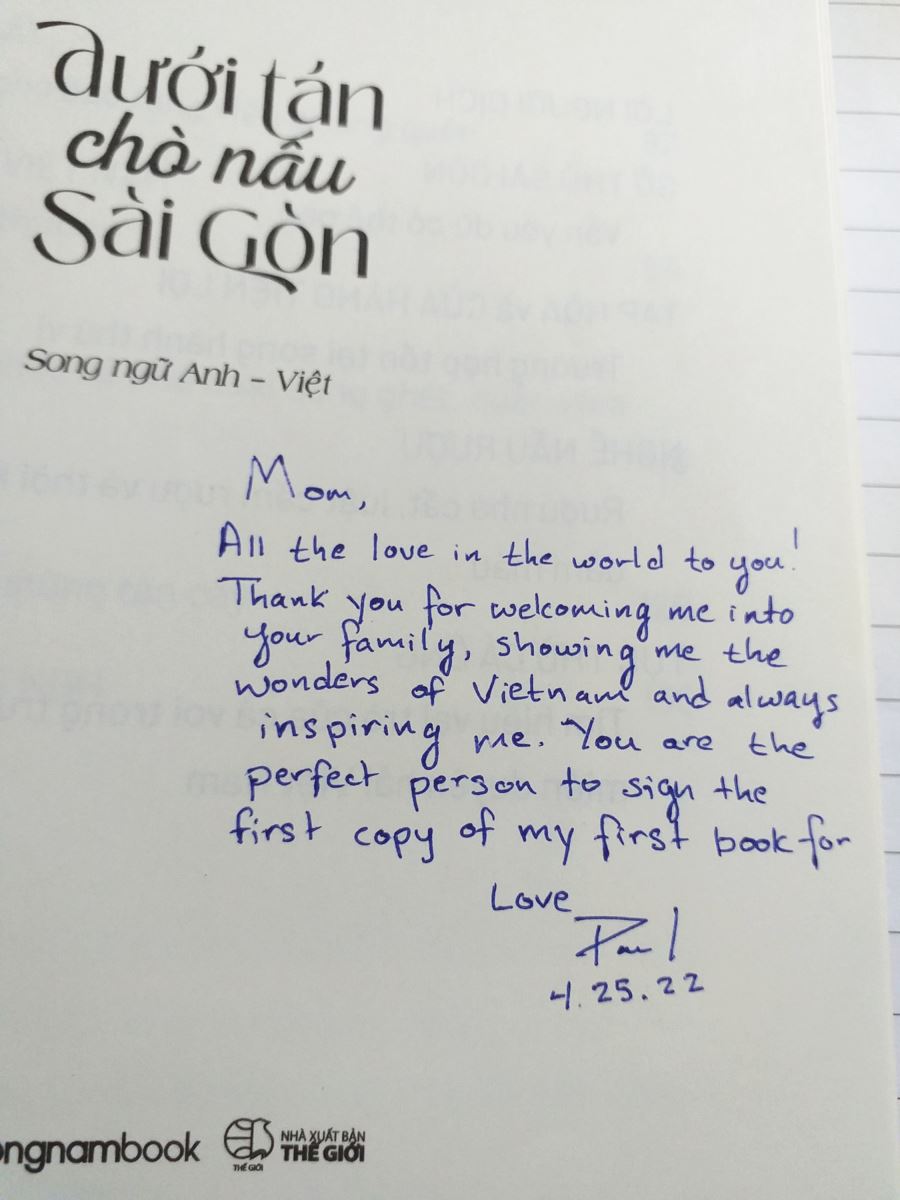 dưới tán
chò nâu
Sài Gòn
Song ngữ Anh - Việt
Mom,
All the love in the world to you!
Thank you for welcoming me into
your family, showing me the
wonders of Vietnam and always
inspiring me. You are the
perfect person to sign the
first copy of my first book for
Love
Paul
4.25.22
ongnambook
THẾ GIỚI
NHÀ XUẤT BẢN
THẾ GIỚI